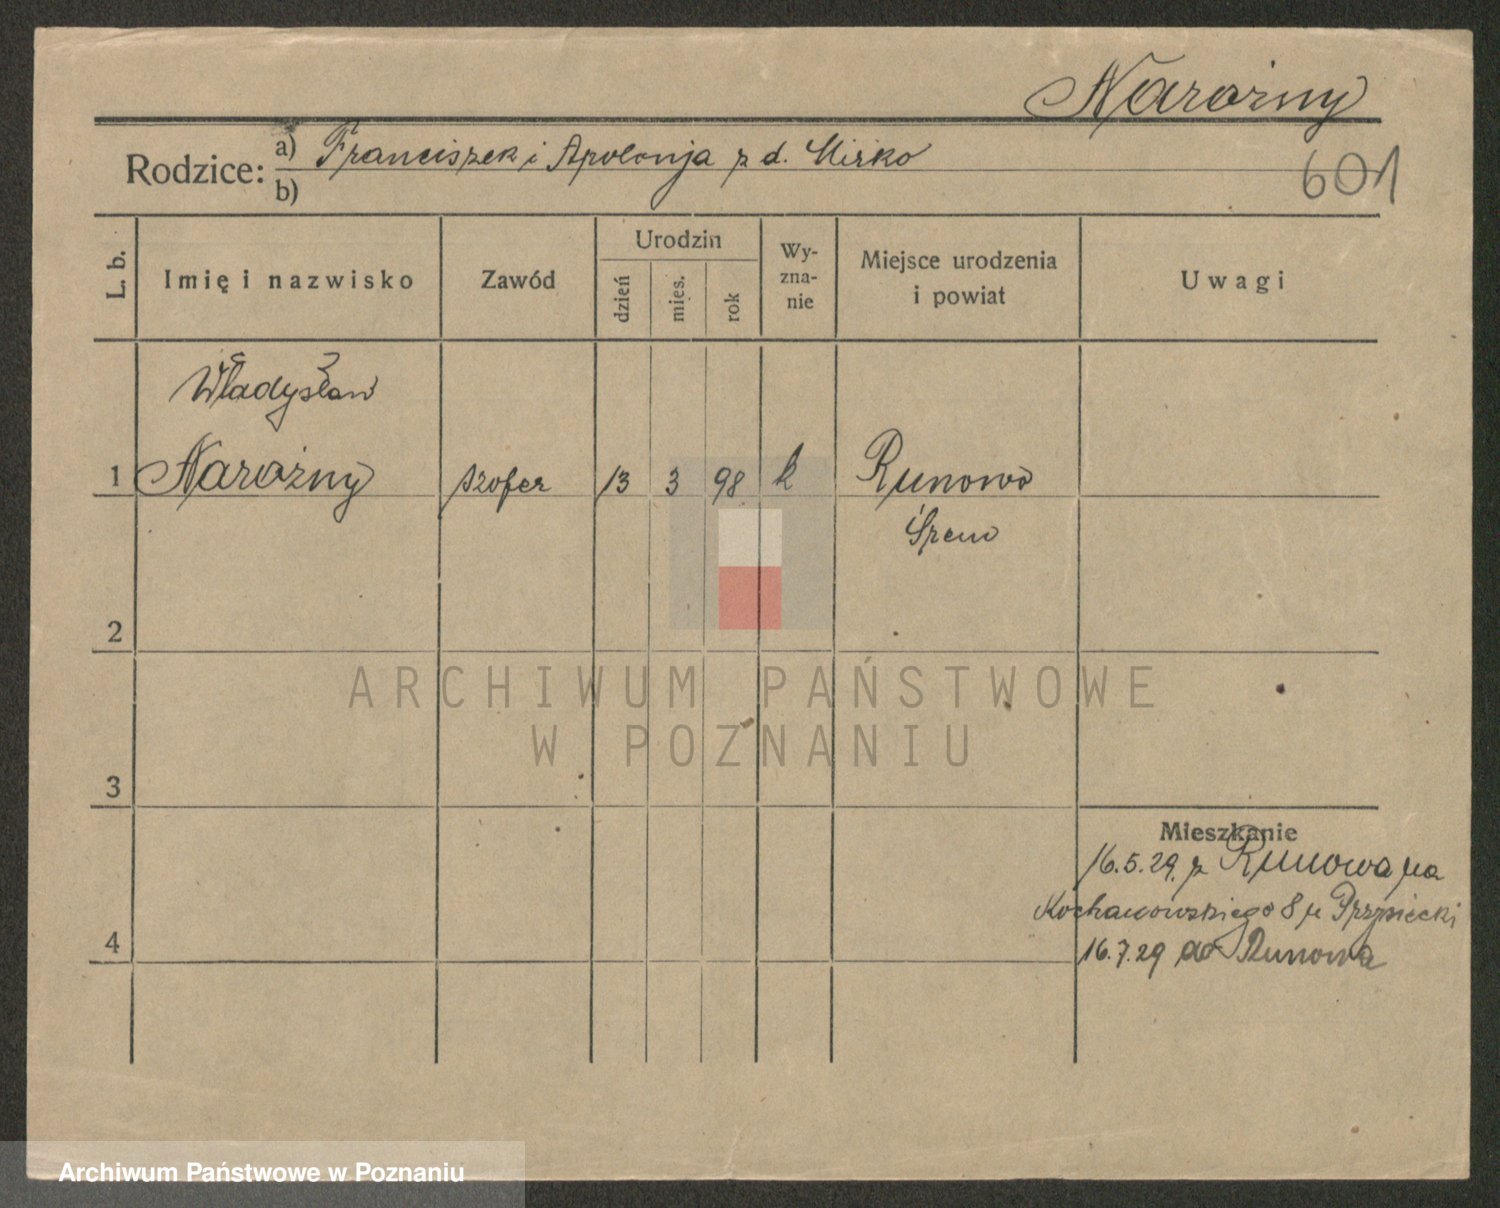 Narożny
Rodzice: a) Franciszek i Apolonja z d. Mirko
b)
601
L. b.
Imię i nazwisko
Zawód
Urodzin
dzień
mies.
rok
Wy-
zna-
nie
Miejsce urodzenia
i powiat
Uwagi
Władysław
1 Narożny szofer 13 3 98 k Runowo
Śrem
2
3
4
Mieszkanie
16.5.29. z Runowa na
Kochanowskiego 8 u Przysiecki
16.7.29 do Runowa
ARCHIWUM PAŃSTWOWE
W POZNANIU
Archiwum Państwowe w Poznaniu